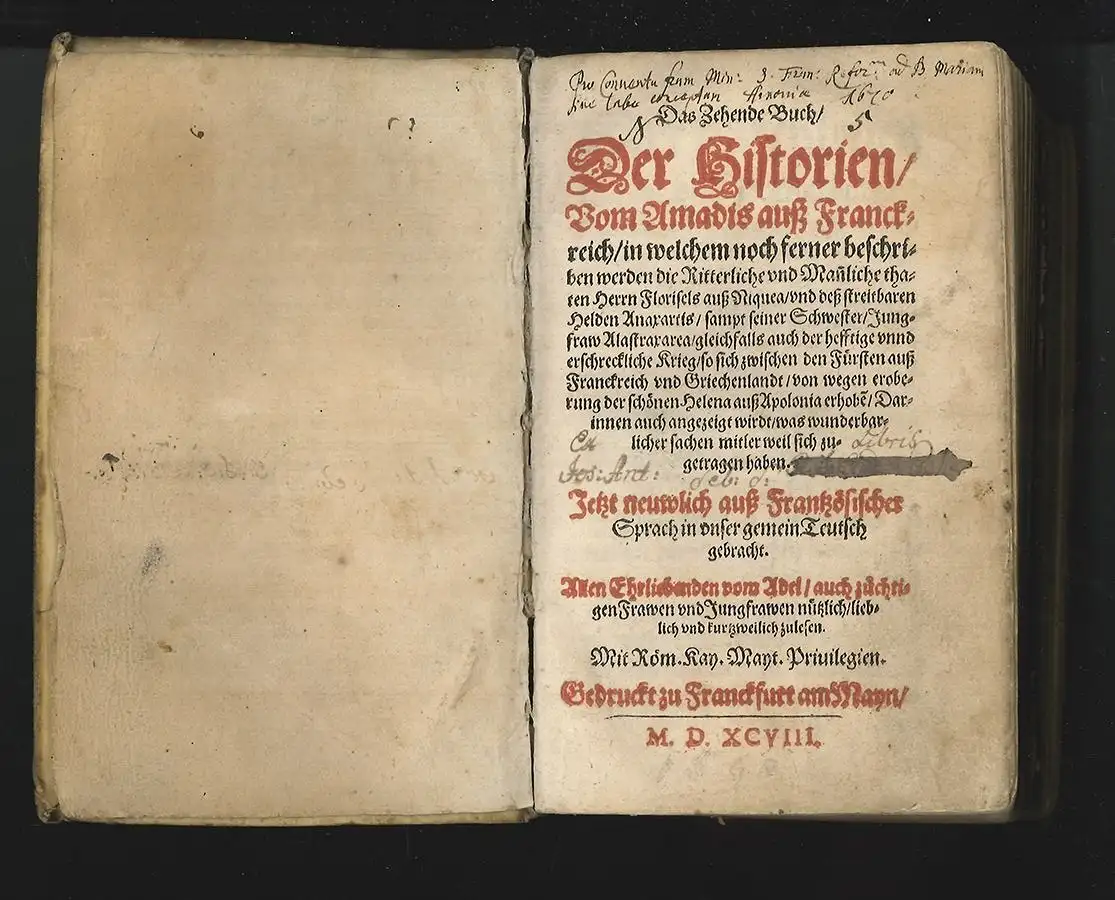 Pro Conventu frum Min: S. Fran: Refor. ad B. Mariam
sine labe conceptam
Das Zehende Buch/
N 5
Der Historien/
Vom Amadis auß Franck-
reich/in welchem noch ferner beschri-
ben werden die Ritterliche vnd Mañliche tha-
ten Herrn Florisels auß Niquea/vnd deß streitbaren
Helden Anaxartis/ sampt seiner Schwester/Jung-
fraw Alastraxarea/gleichfalls auch der hefftige vnnd
erschreckliche Krieg/so sich zwischen den Fürsten auß
Franckreich vnd Griechenlandt/von wegen erobe-
rung der schönen Helena auß Apolonia erhobẽ/Dar-
innen auch angezeigt wirdt/was wunderbar-
licher sachen mitler weil sich zu-
getragen haben.
Ex Libris
Jos: Ant:
Jetzt neuwlich auß Frantzösischer
Sprach in vnser gemein Teutsch
gebracht.
Allen Ehrliebenden vom Adel/auch züchti-
gen Frawen vnd Jungfrawen nützlich/lieb-
lich vnd kurtzweilich zulesen.
Mit Röm. Kay. Mayt. Priuilegien.
Gedruckt zu Franckfurt am Mayn/
M. D. XCVIII.